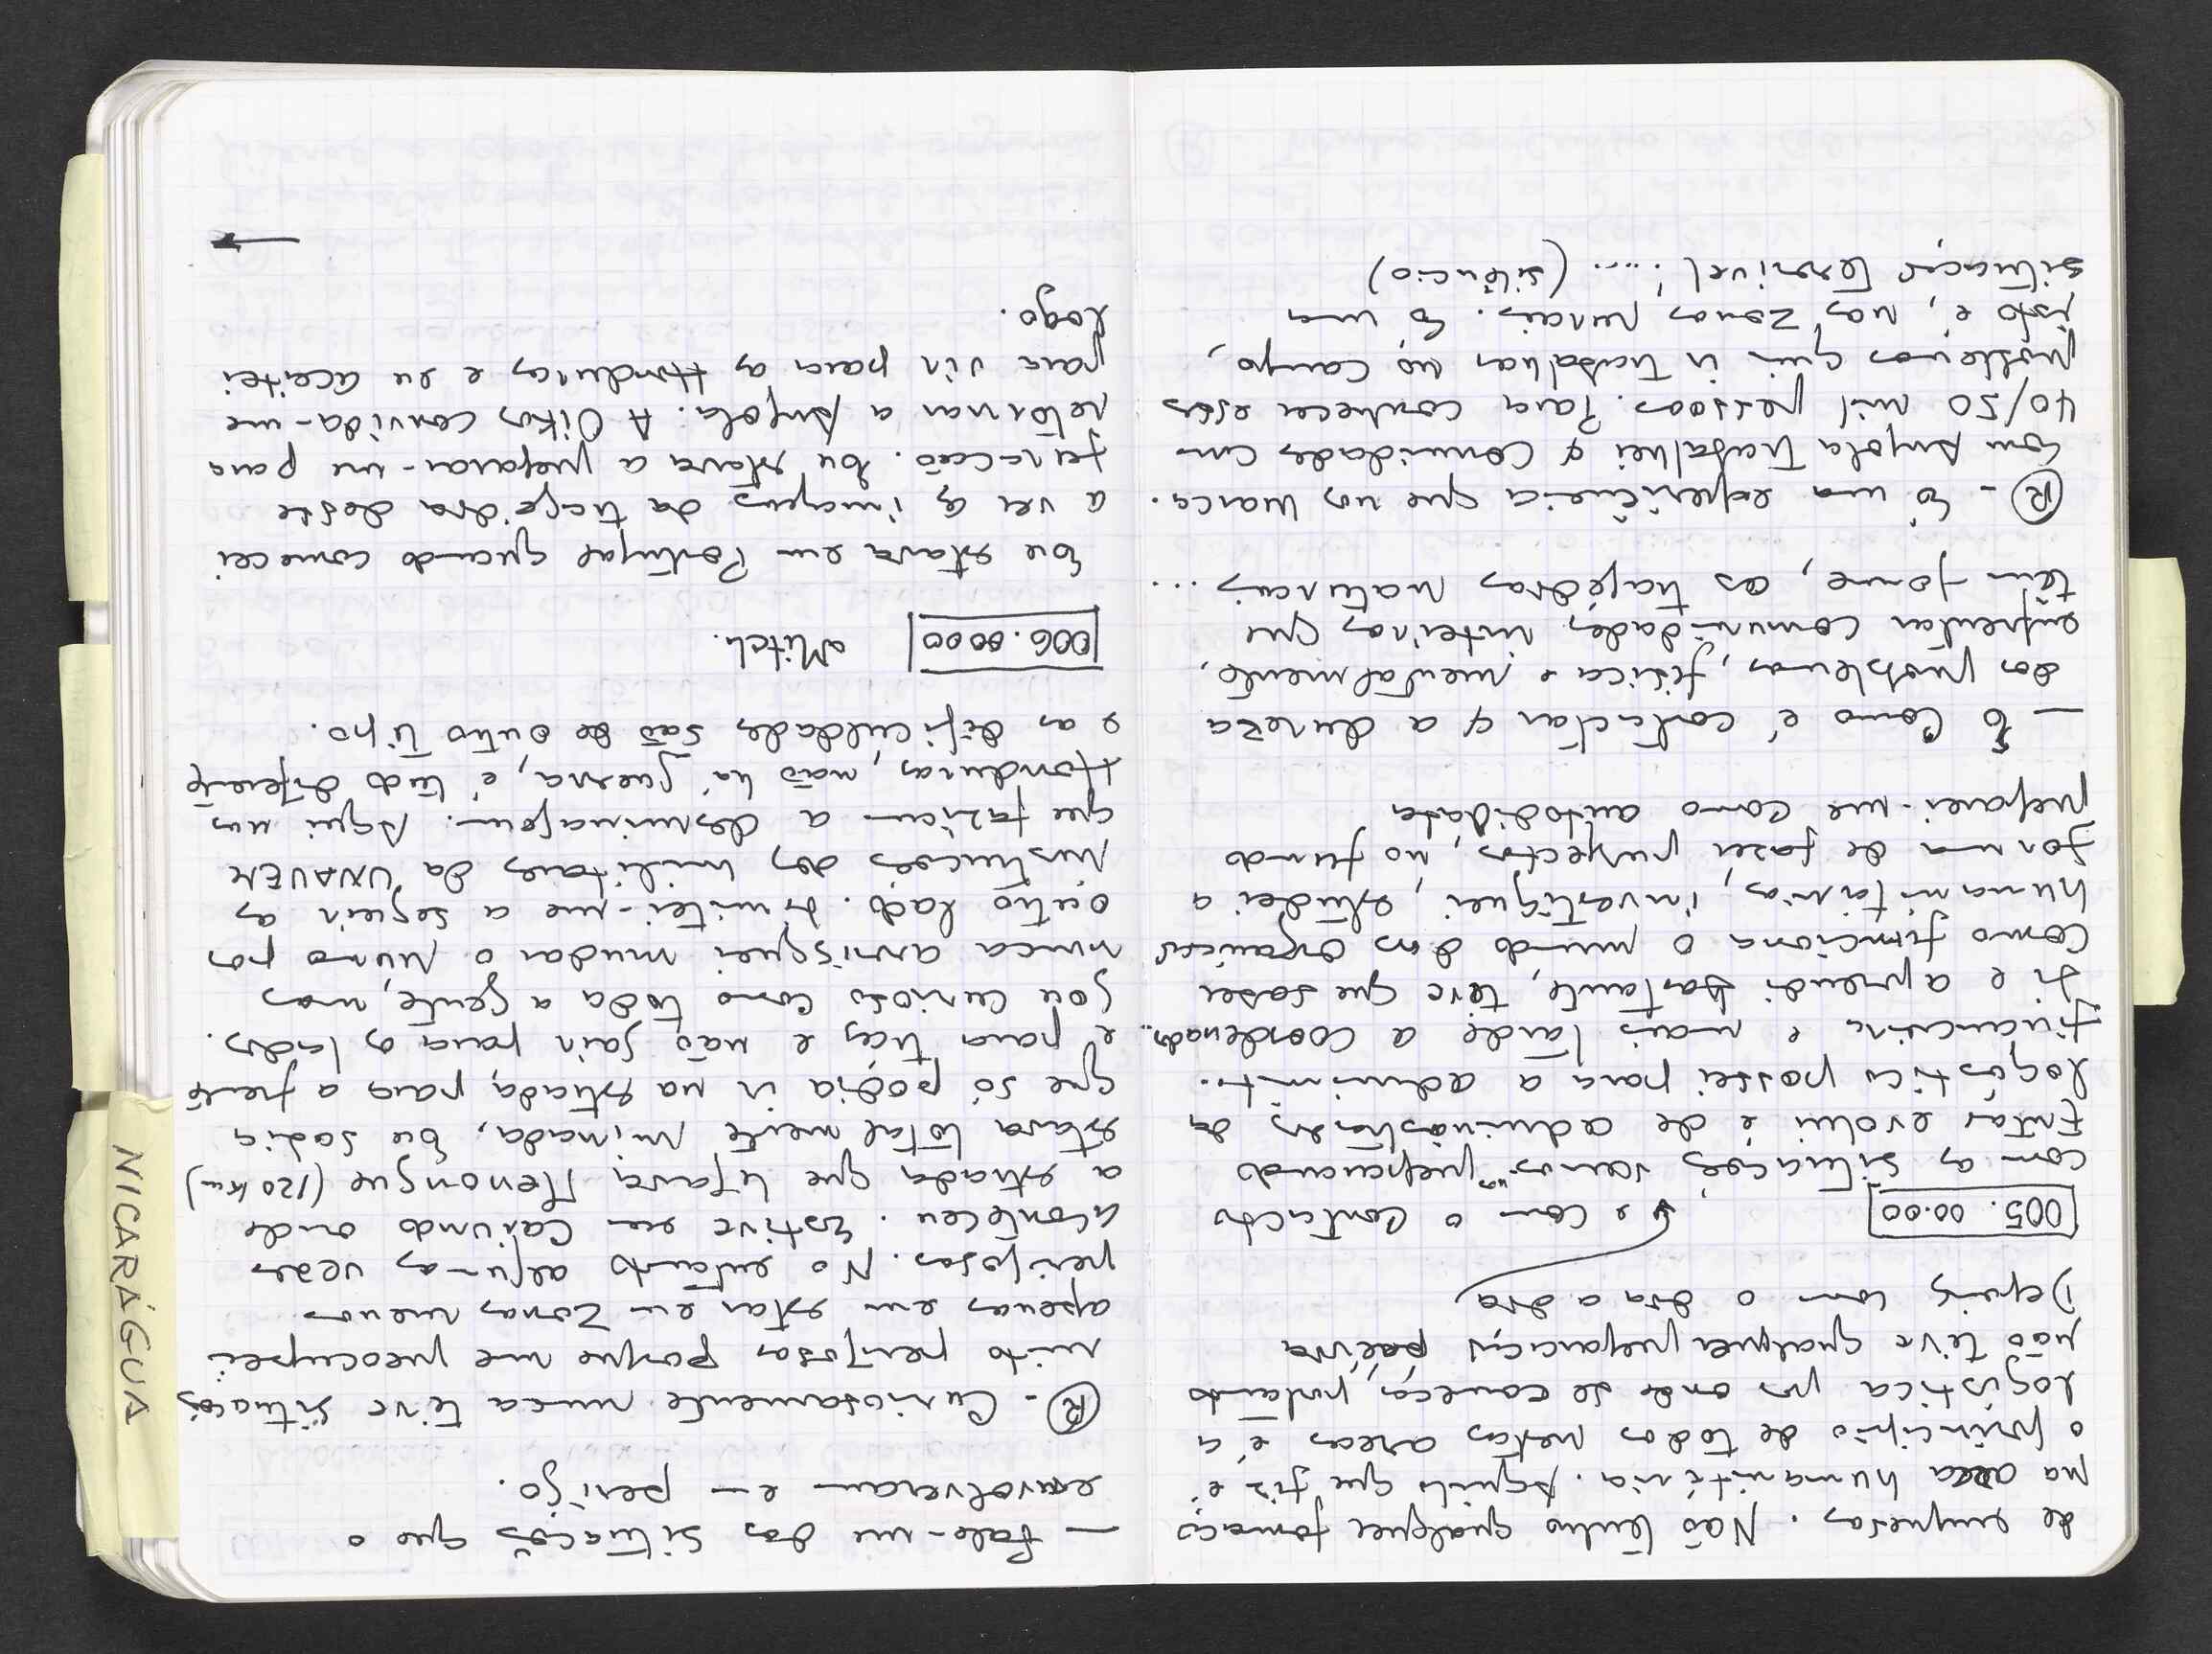 de empresas. Não tenho qualquer formação
na area humanitária. Aquilo que fiz é
o princípio de todos nestas areas é a
logística por onde se começa, portanto
não tive qualquer preparação prévia
Depois com o dia a dia
005.00.00 e com o contacto
com as situações vamos-nos preparando
Então evolui é de administrador da
logística passei para a administ.
financeira e mais tarde a coordenador..
fi e aprendi bastante, tive que saber
como funciona o mundo das organizações
humanitárias, investiguei, estudei a
forma de fazer projectos, no fundo
preparei-me como autodidata
— E como é contactar c/ a dureza
dos problemas, física e mentalmente,
enfrentar comunidades inteiras que
têm fome, as tragédias naturais ...
(R) - É uma experiência que nos marca.
Em Angola trabalhei c/ comunidades com
40/50 mil pessoas. Para conhecer estes
problemas quis ir trabalhar no campo,
isto é, nas zonas rurais. É uma
situação terrível! .... (silêncio)
— Fale-me das situações que o
envolveram em perigo.
(R) - Curiosamente nunca tive situações
muito perigosas porque me preocupei
apenas em estar em zonas menos
perigosas. No entanto algumas vezes
aconteceu. Estive em Caiundo onde
a estrada que ligava Menongue (120 km)
estava totalmente minada, eu sabia
que só podia ir na estrada para a frente
e para trás e não sair para os lados.
Sou curioso como toda a gente, mas
nunca arrisquei mudar o rumo por
outro lado. Limitei-me a seguir as
instruções dos militares da UNAVEM
que faziam a desminagem. Aqui nas
Honduras, não há guerra, é tudo diferente
e as dificuldades são de outro tipo.
006.00.00 Mitch.
Eu estava em Portugal quando comecei
a ver as imagens da tragédia deste
furacão. Eu estava a preparar-me para
retornar a Angola. A Oikos convida-me
para vir para as Honduras e eu aceitei
logo.
→
NICARÁGUA